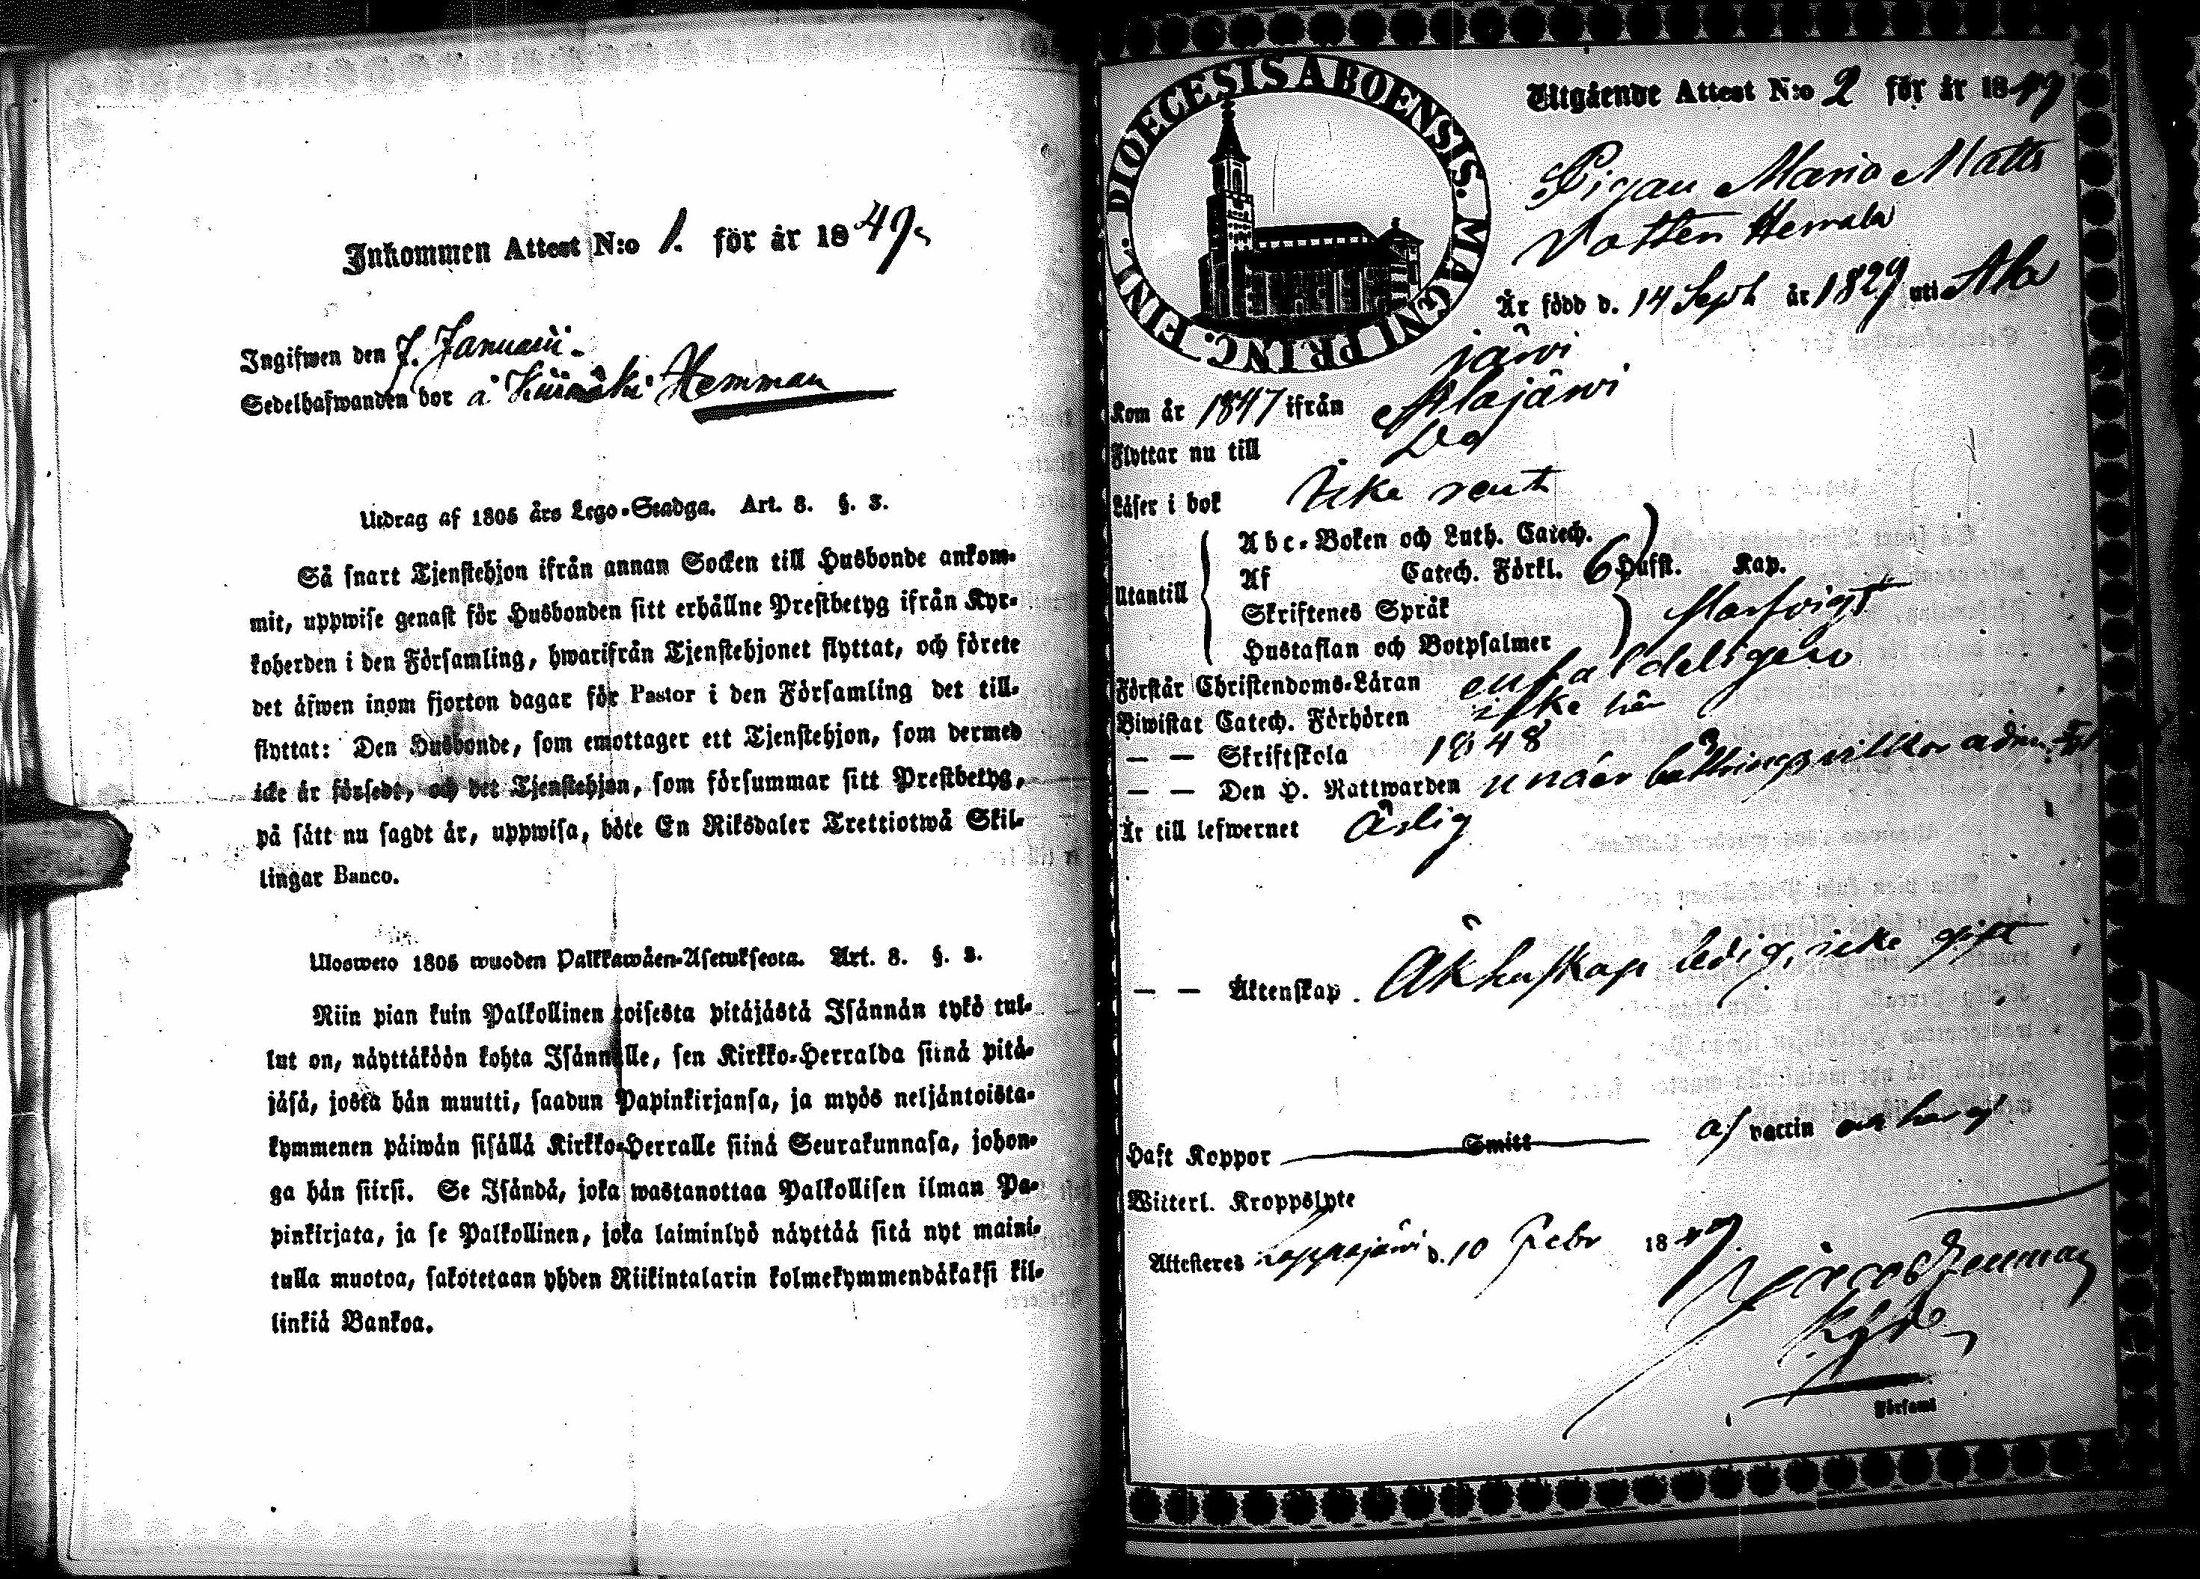 Inkommen Attest N:o 1. för år 1849.
Ingifwen den 7. Januarii.
Sedelhafwanden bor å Hemman
Utdrag af 1805 års Lego-Stadga. Art. 8. §. 3.
Så snart Tjenstehjon ifrån annan Socken till Husbonde ankom-
mit, uppwise genast för Husbonden sitt erhållne Prestbetyg ifrån Kyr-
koherden i den Församling, hwarifrån Tjenstehjonet flyttat, och förete
det äfwen inom fjorton dagar för Pastor i den Församling det till-
flyttat: Den Husbonde, som emottager ett Tjenstehjon, som dermed
icke är försedt, och det Tjenstehjon, som försummar sitt Prestbetyg,
på sätt nu sagdt är, uppwisa, böte En Riksdaler Trettiotwå Skil-
lingar Banco.
Ulosweto 1805 wuoden Palkkawäen-Asetuksesta. Art. 8. §. 3.
Niin pian kuin Palkollinen toisesta pitäjästä Isännän tykö tul-
lut on, näyttäköön kohta Isännälle, sen Kirkko-Herralda siinä pitä-
jäsä, josta hän muutti, saadun Papinkirjansa, ja myös neljäntoista-
kymmenen päiwän sisällä Kirkko-Herralle siinä Seurakunnasa, johon-
ga hän siirsi. Se Isändä, joka wastanottaa Palkollisen ilman Pa-
pinkirjata, ja se Palkollinen, joka laiminlyö näyttää sitä nyt maini-
tulla muotoa, sakotetaan yhden Riikintalarin kolmekymmendäkaksi kil-
linkiä Bankoa.
DIOECESIS ABOENSIS. MAGNI PRINC. FINL.
Utgående Attest N:o 2 för år 1849
Pigan Maria Matts
dotter Herrala
Är född d. 14 Sept år 1829 uti Ala
järvi
Kom år 1847 ifrån Alajärvi
Flyttar nu till Do
Läser i bok icke rent
Utantill
Abc-Boken och Luth. Catech.
Af Catech. Förkl. 6 Hufst. Kap.
Skriftenes Språk
Hustaflan och Botpsalmer
Förstår Christendoms-Läran enfaldeligen
Biwistat Catech. Förhören icke här
— — Skriftskola 1848
— — Den H. Nattwarden under bättringsvillkor
Är till lefwernet Ärlig
— — Äktenskap. Äktenskap ledig, icke gift
Haft Koppor Smitt af vaccin
Witterl. Kroppslyte
Attesteres Lappajärvi d. 10 Febr 1849.
Församl